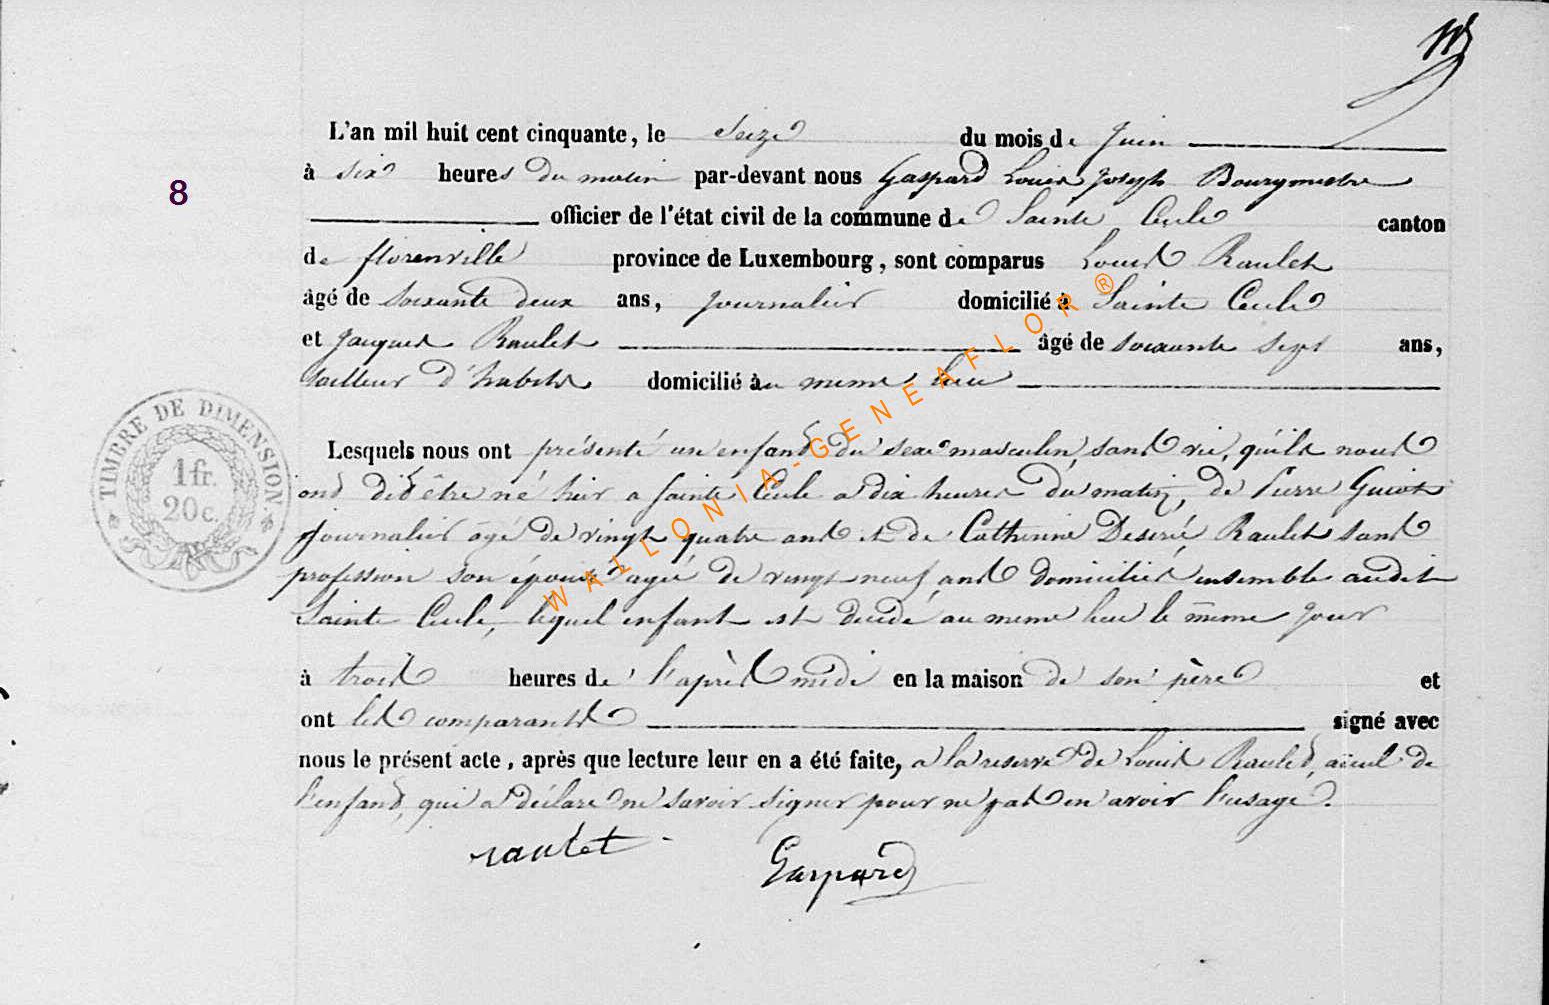 8
L'an mil huit cent cinquante, le seize du mois de Juin
à six heures du matin par-devant nous Gaspard Louis Joseph Bourgmestre
officier de l'état civil de la commune de Sainte Cecile canton
de florenville province de Luxembourg, sont comparus Louis Raulet
âgé de soixante deux ans, Journalier domicilié à Sainte Cecile
et Jacques Raulet âgé de soixante sept ans,
tailleur d'habits domicilié au meme lieu
Lesquels nous ont présenté un enfant du sexe masculin, sans vie, qu'ils nous
ont dit être né hier a Sainte Cecile a dix heures du matin, de Pierre Guiot
Journalier âgé de vingt quatre ans et de Catherine Deserié Raulet sans
profession son épouse agée de vingt neuf ans domiciliés ensemble audit
Sainte Cecile, lequel enfant est decédé au meme lieu le même jour
à trois heures de l'après midi en la maison de son père et
ont les comparants signé avec
nous le présent acte, après que lecture leur en a été faite, a la reserve de Louis Raulet, aieul de
l'enfant, qui a déclaré ne savoir signer pour ne pas en avoir l'usage.
raulet Gaspard
TIMBRE DE DIMENSION
1 fr.
20 c.
WALLONIA-GENEAFLOR ®